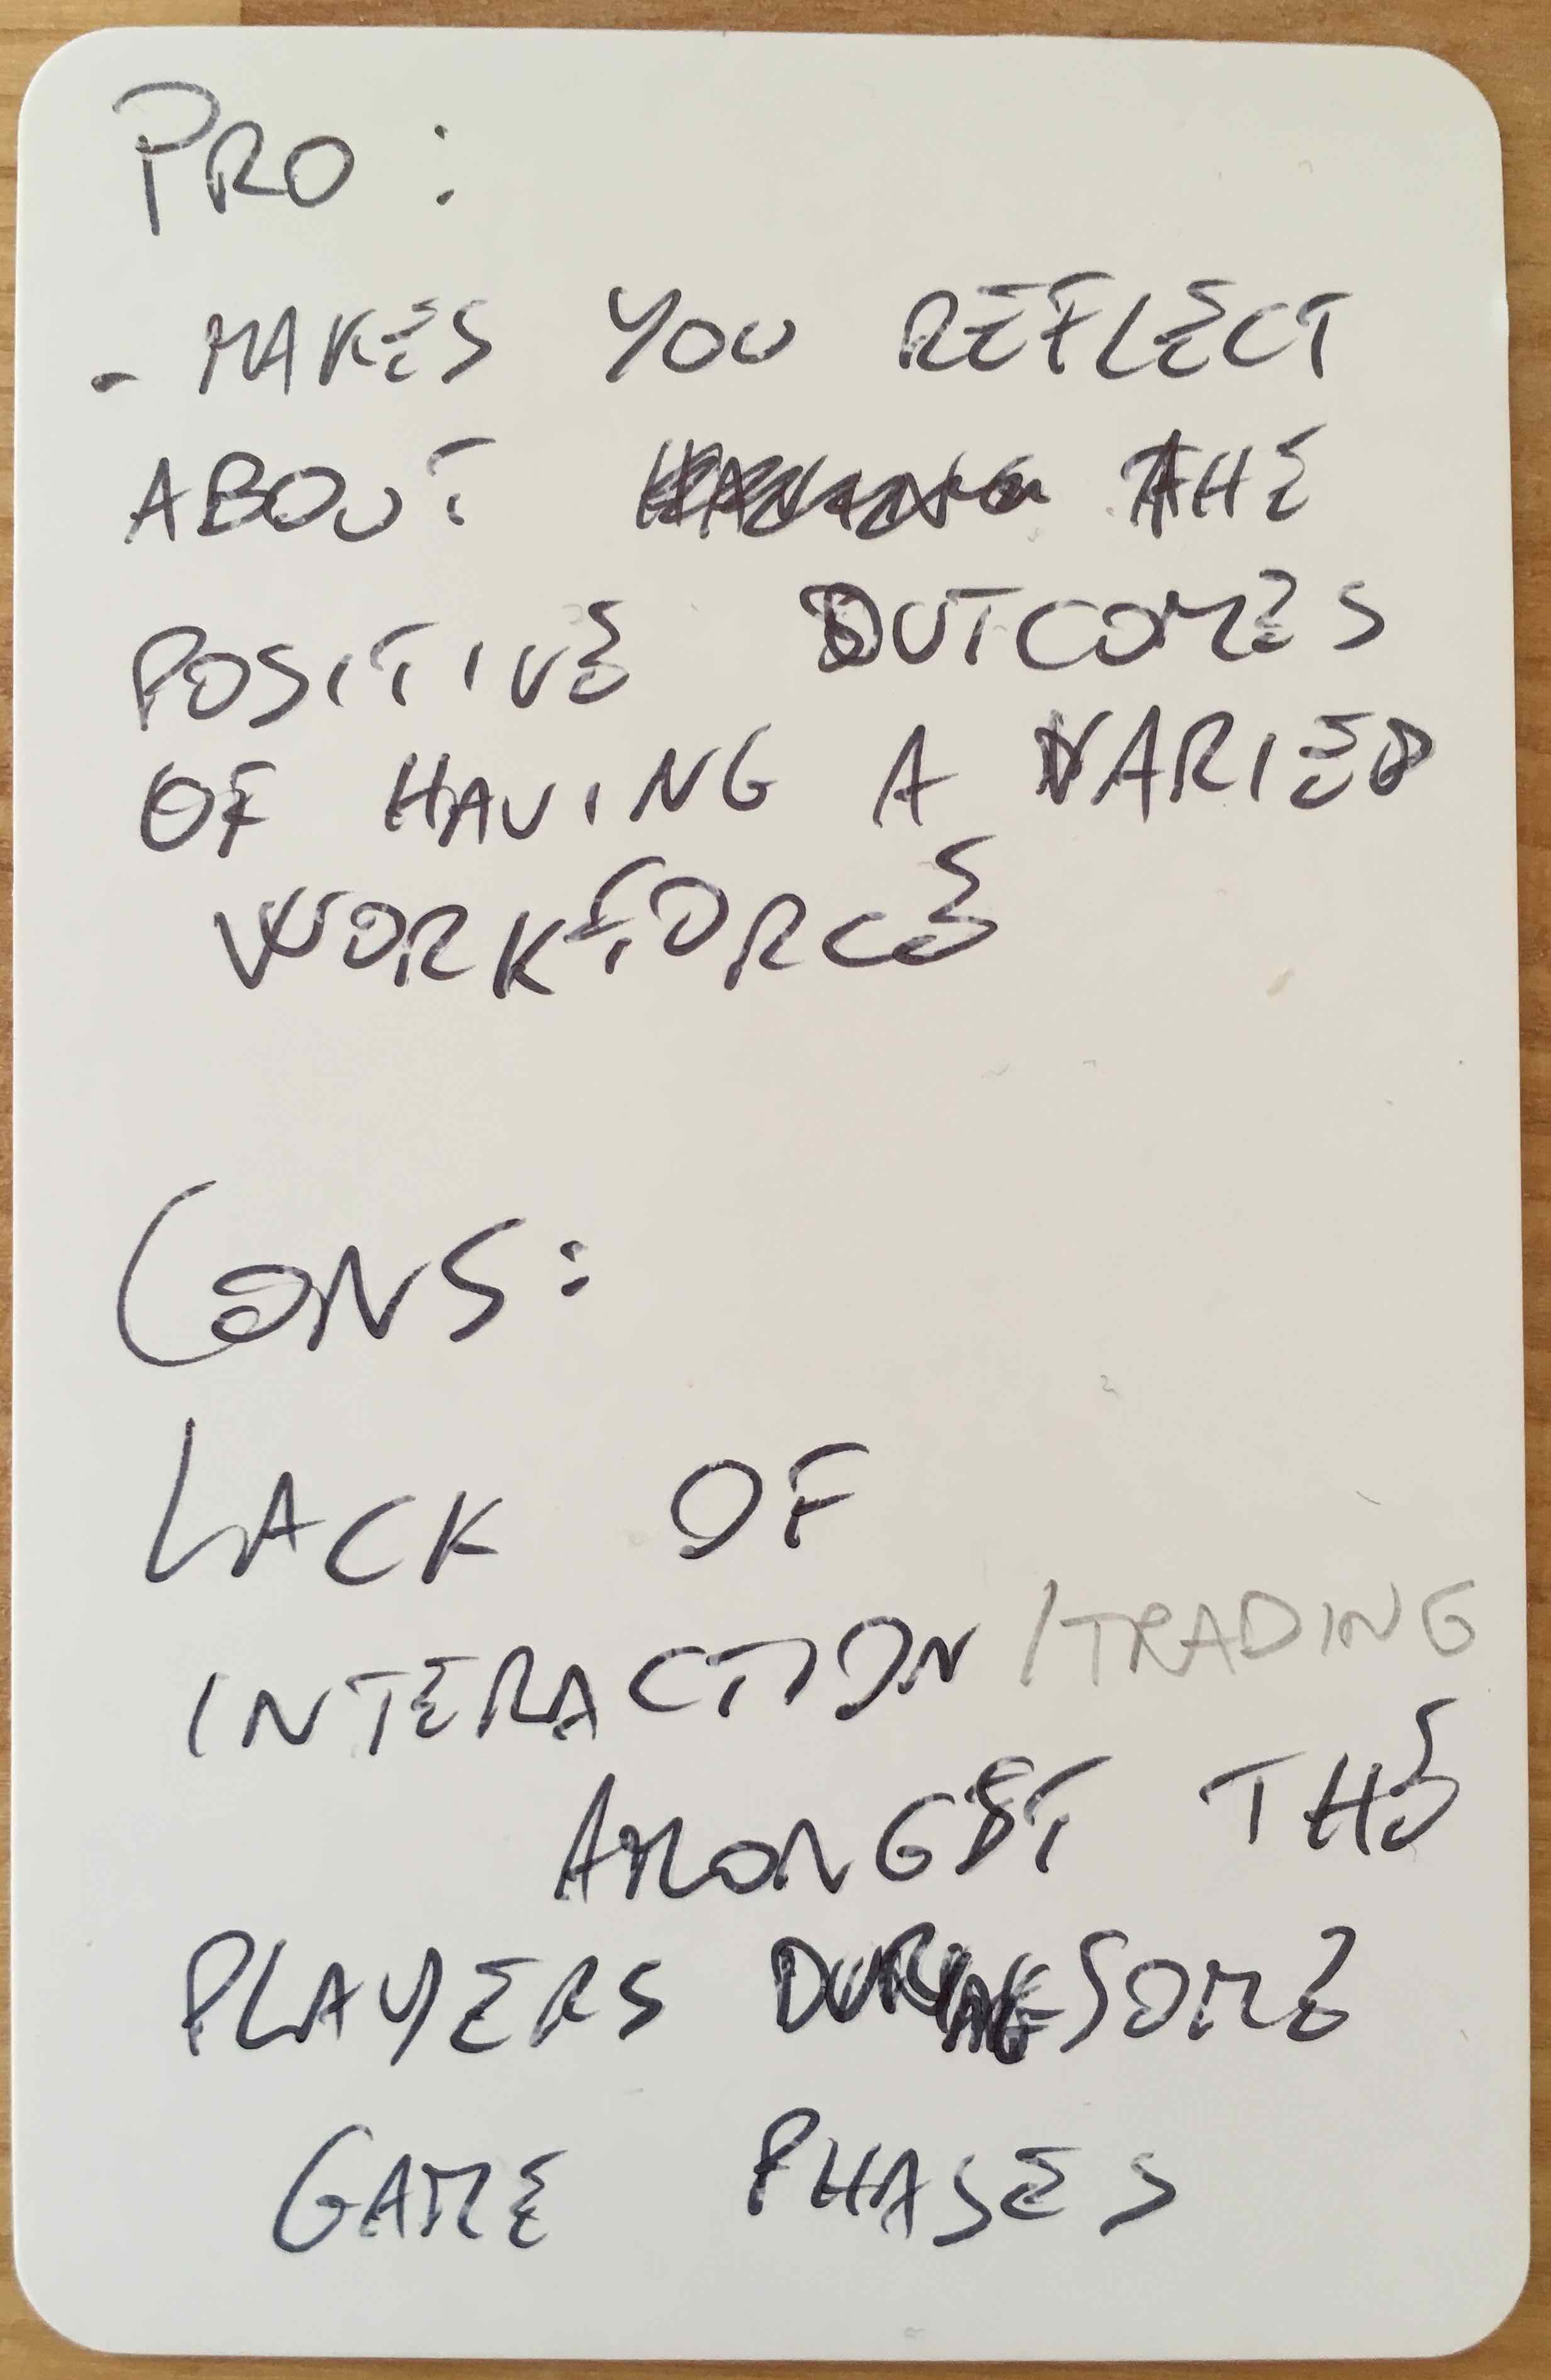 PRO:
- MAKES YOU REFLECT
ABOUT THE
POSITIVE OUTCOMES
OF HAVING A VARIED
WORKFORCE
CONS:
LACK OF
INTERACTION /TRADING
AMONGST THE
PLAYERS DURING SOME
GAME PHASES